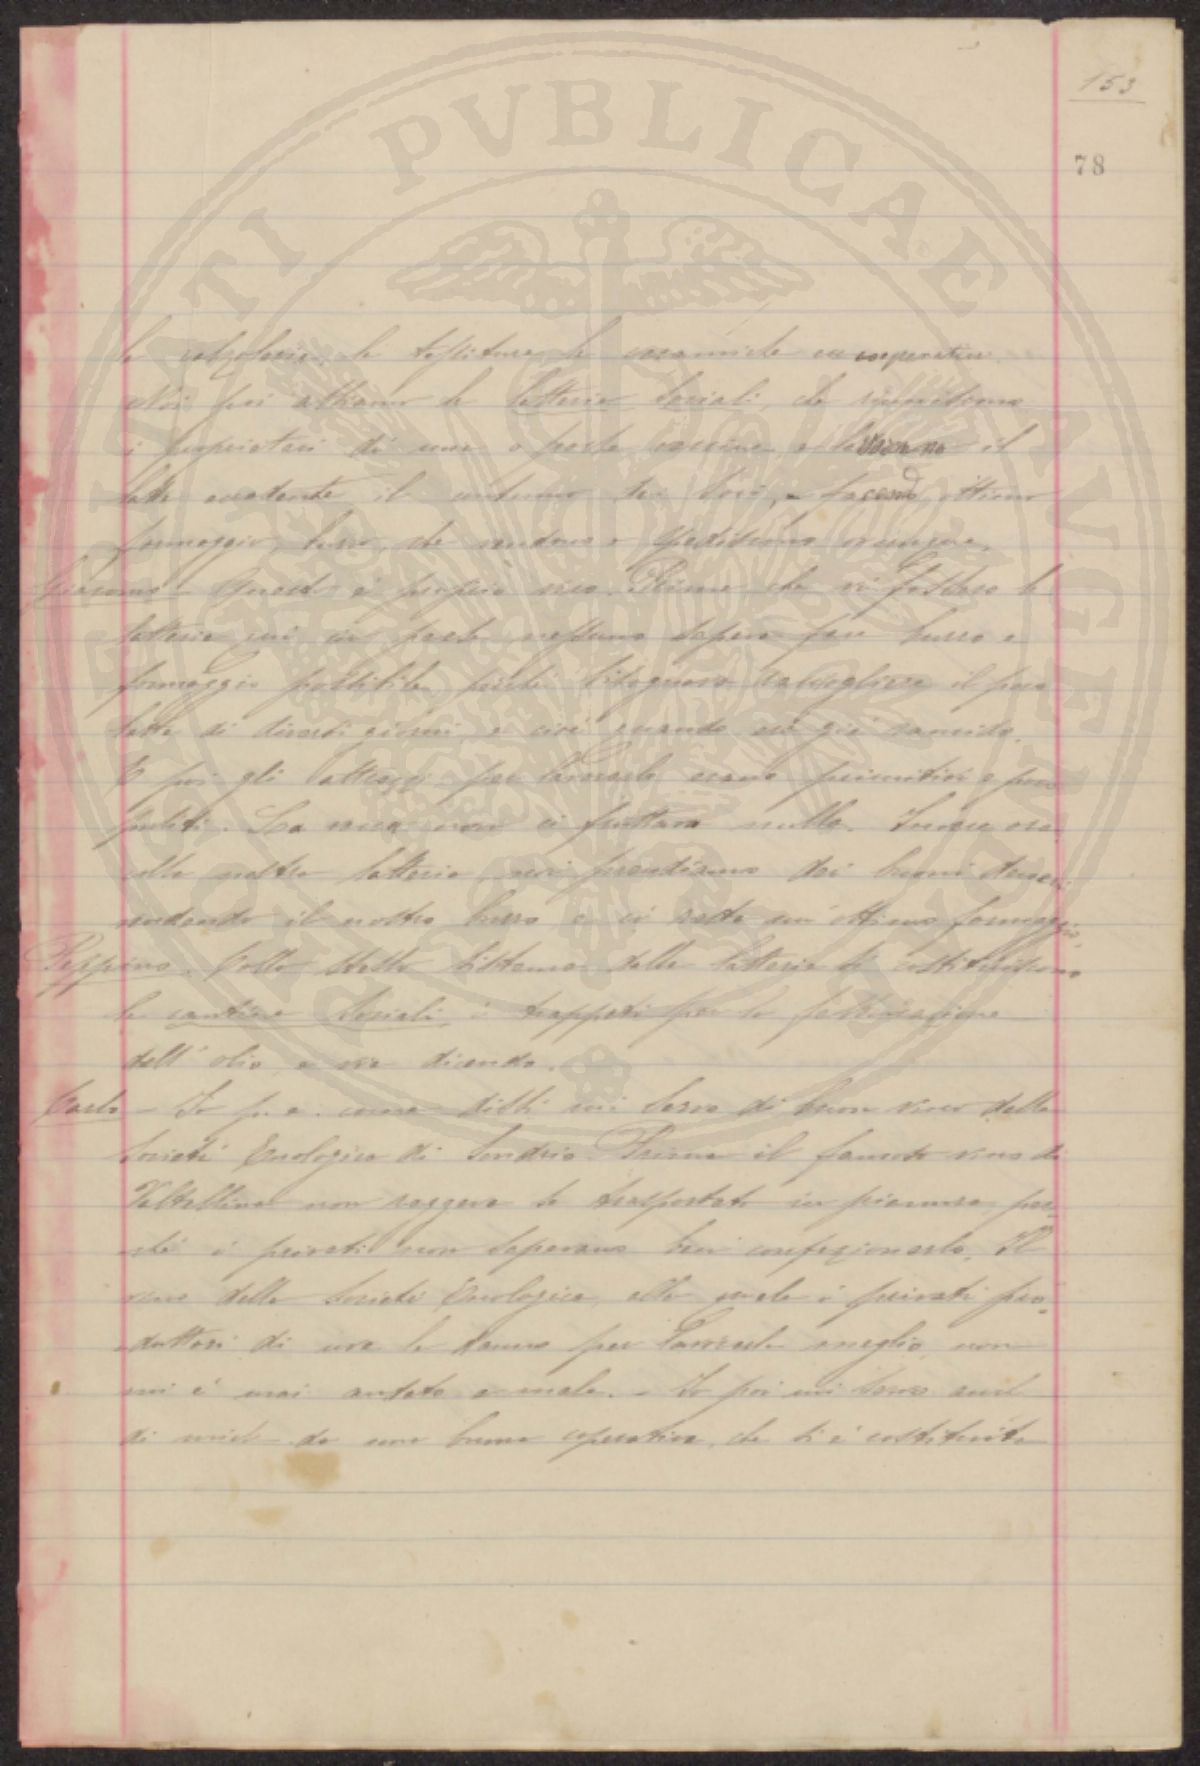 153
78
le calzolerie, le tessiture, le ceramiche cooperative.
Noi poi abbiamo le latterie sociali, che riuniscono
i proprietari di una o poche vaccine e lavorano il
latte in comune tra soci, e facendo ottimo
formaggio, burro, che vendono e spediscono ovunque.
Giacomo - Questo è proprio vero. Prima che vi fossero le
latterie qui in paese nessuno sapeva fare burro e
formaggio possibile, poiché bisognava raccogliere il poco
latte di diversi giorni, e cioè quando era già rancido.
E poi gli attrezzi per lavorarlo erano primitivi e poco
puliti. La vacca non ci fruttava nulla. Invece ora
colla nostra latteria noi prendiamo dei buoni denari
vendendo il nostro burro e ci resta un ottimo formaggio.
Peppino. Collo stesso sistema delle latterie si costituiscono
le cantine sociali, i trappeti per la fabbricazione
dell'olio, e via dicendo.
Carlo - Io p. e. come dissi mi servo di buon vino dalla
Società Enologica di Sondrio. Prima il famoso vino di
Valtellina non reggeva se trasportato in pianura, per-
ché i privati non sapevano ben confezionarlo. Il
vino della Società Enologica, alla quale i privati pro-
duttori di uva la danno per lavorarla meglio, non
mi è mai andato a male. - Io poi mi servo anche
di miele da una buona coperativa, che si è costituita